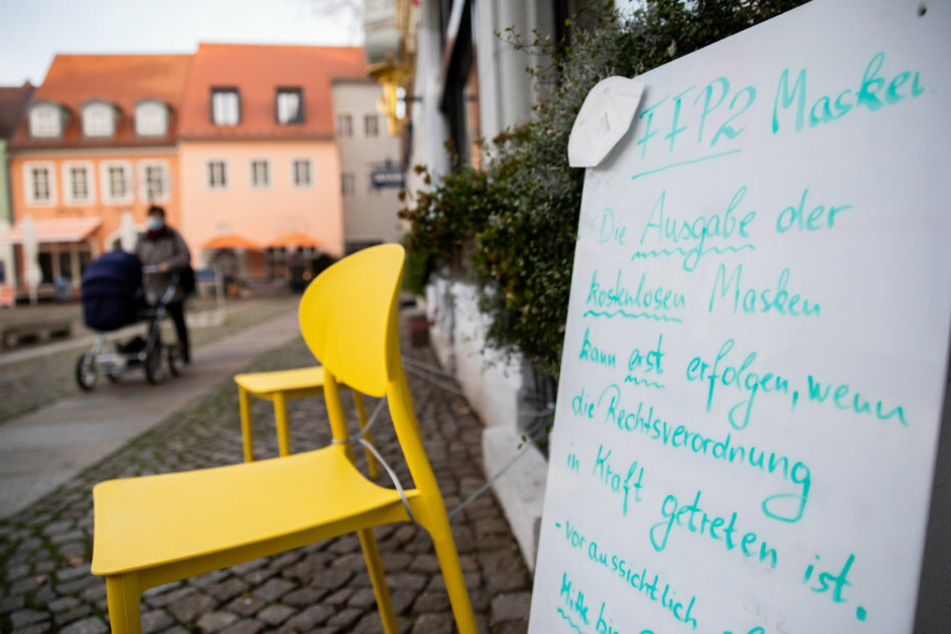 FFP2 Masken
Die Ausgabe der
kostenlosen Masken
kann erst erfolgen, wenn
die Rechtsverordnung
in Kraft getreten ist.
- voraussichtlich
Mitte bis